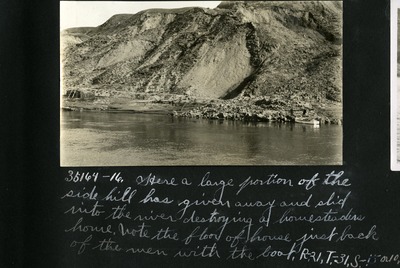 35164-16. Here a large portion of the
side hill has given away and slid
into the river destroying a homesteaders
home. Note the floor of house just back
of the men with the boat. R-21, T-31, S-